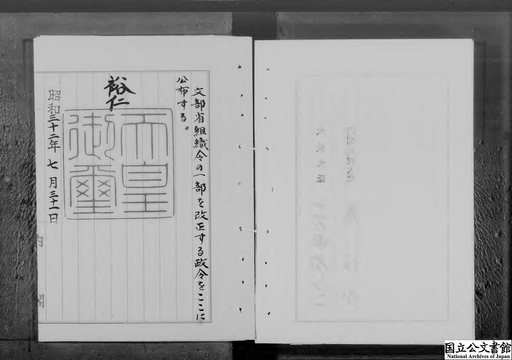 文部省組織令の一部を改正する政令をここに
公布する。
裕仁
天皇
御璽
昭和三十二年七月三十一日
内閣
国立公文書館
National Archives of Japan